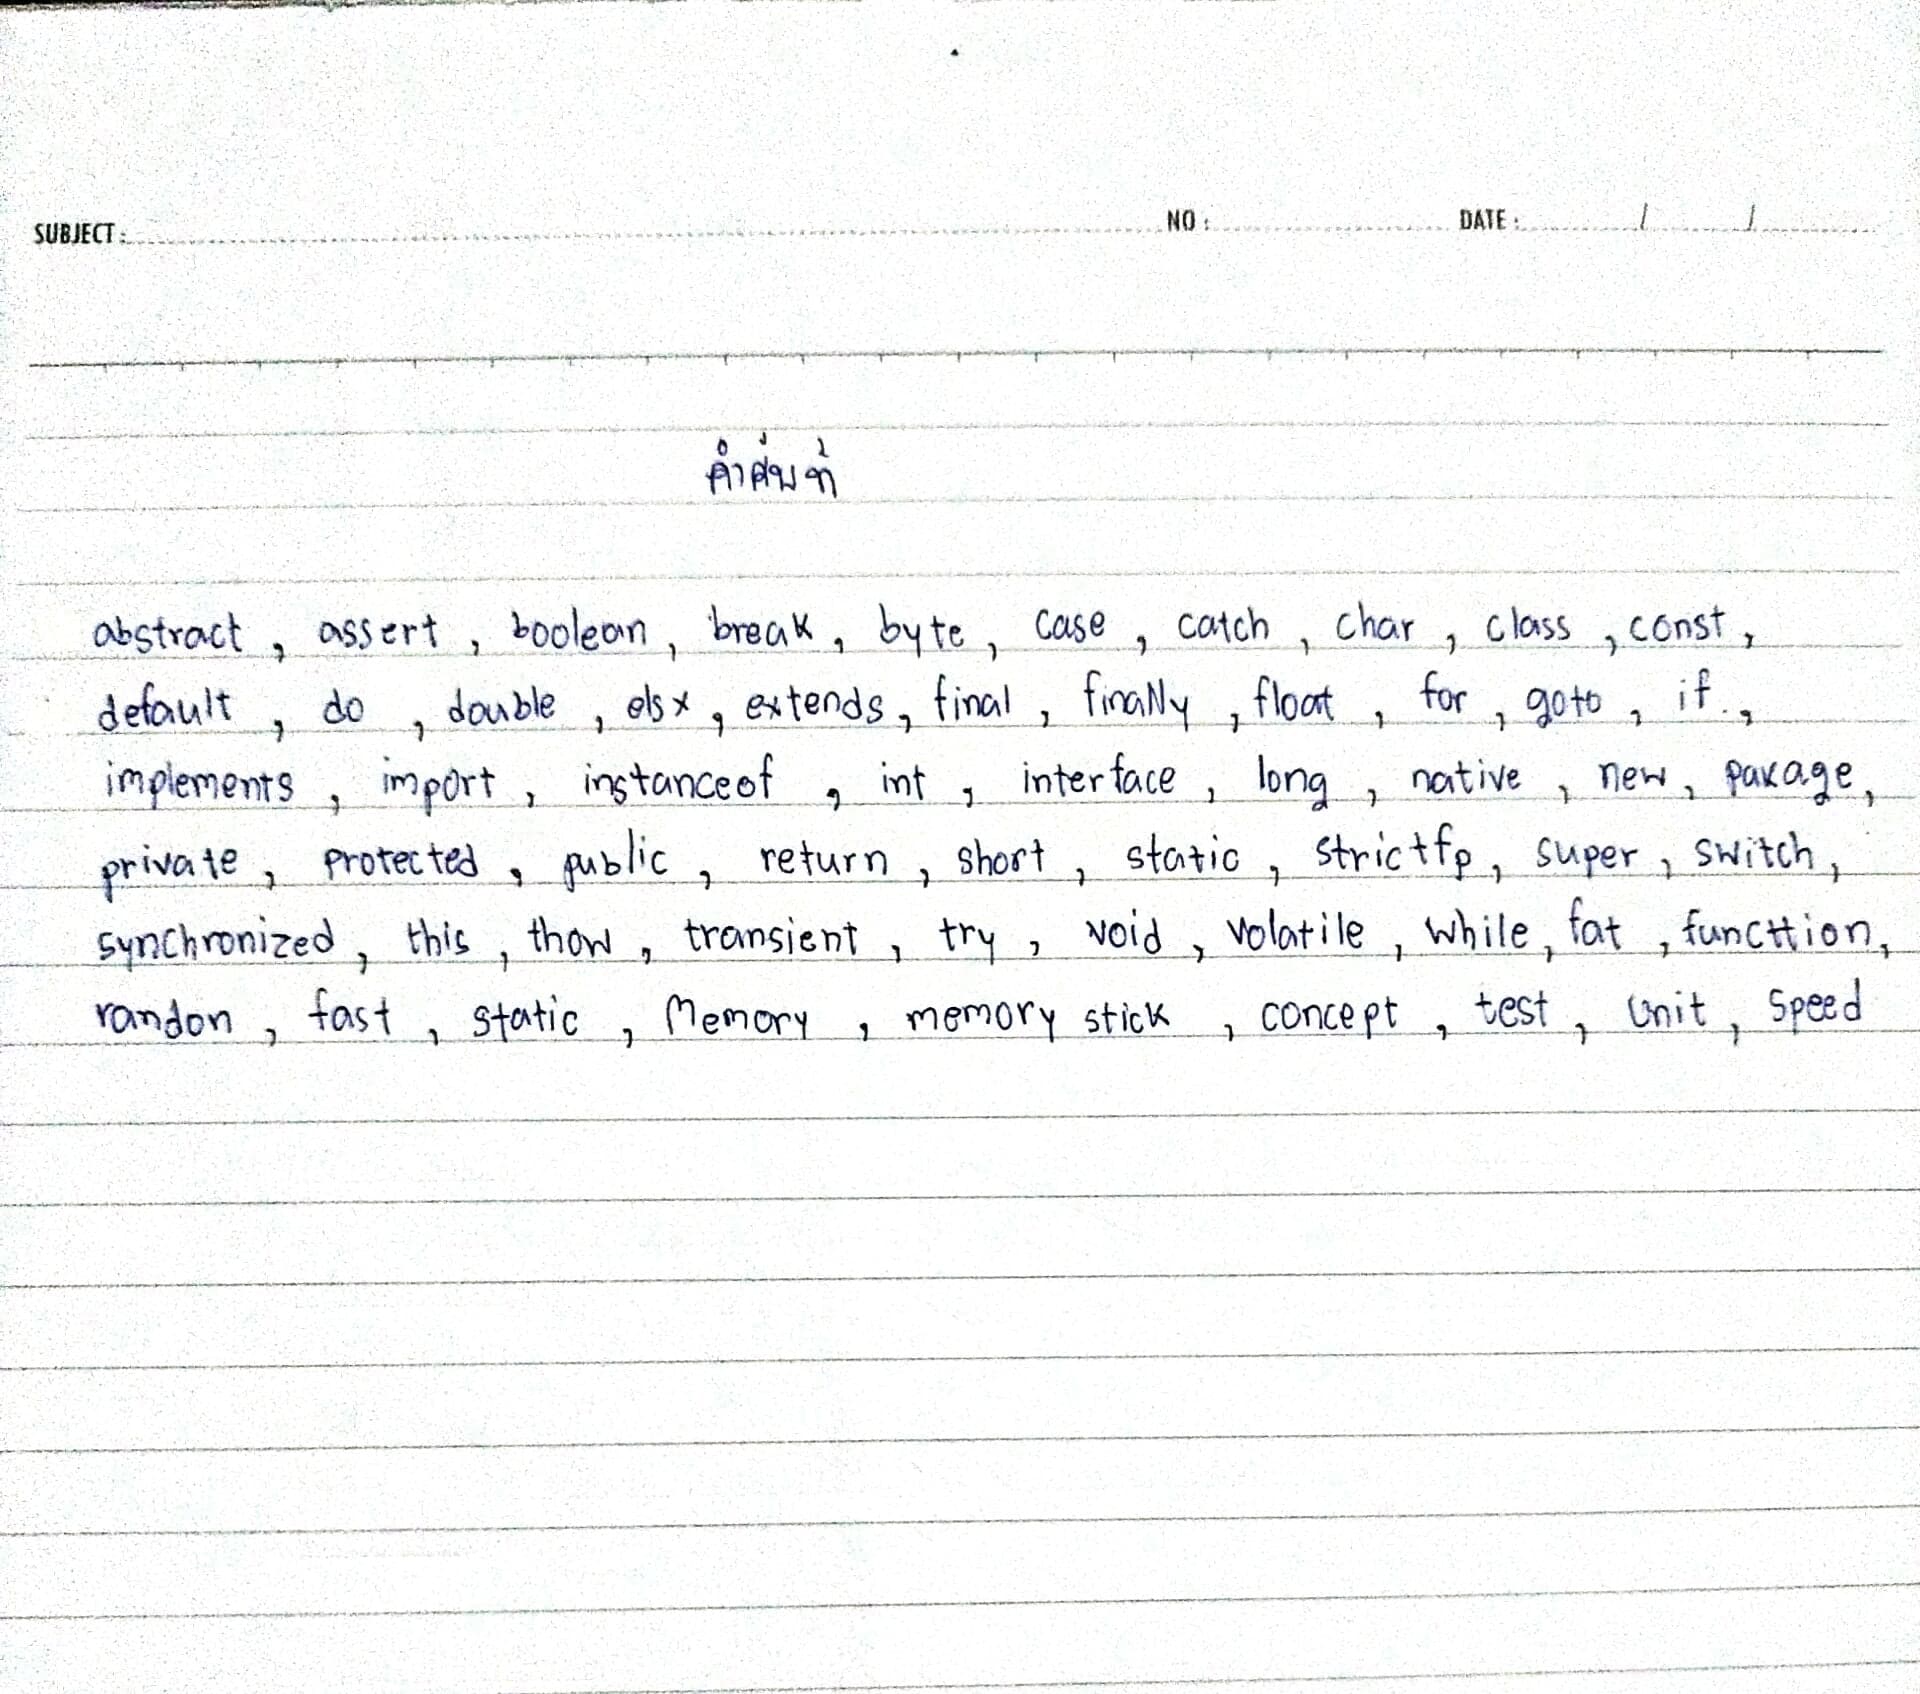 SUBJECT: NO: DATE: / /
คำศัพท์
abstract , assert , boolean , break , byte , case , catch , char , class , const ,
default , do , double , elsx , extends , final , finally , float , for , goto , if. ,
implements , import , instanceof , int , interface , long , native , new , pakage ,
private , protected , public , return , short , static , strictfp , super , switch ,
synchronized , this , thow , transient , try , void , volatile , while , fat , functtion ,
randon , fast , static , Memory , memory stick , concept , test , Unit , Speed